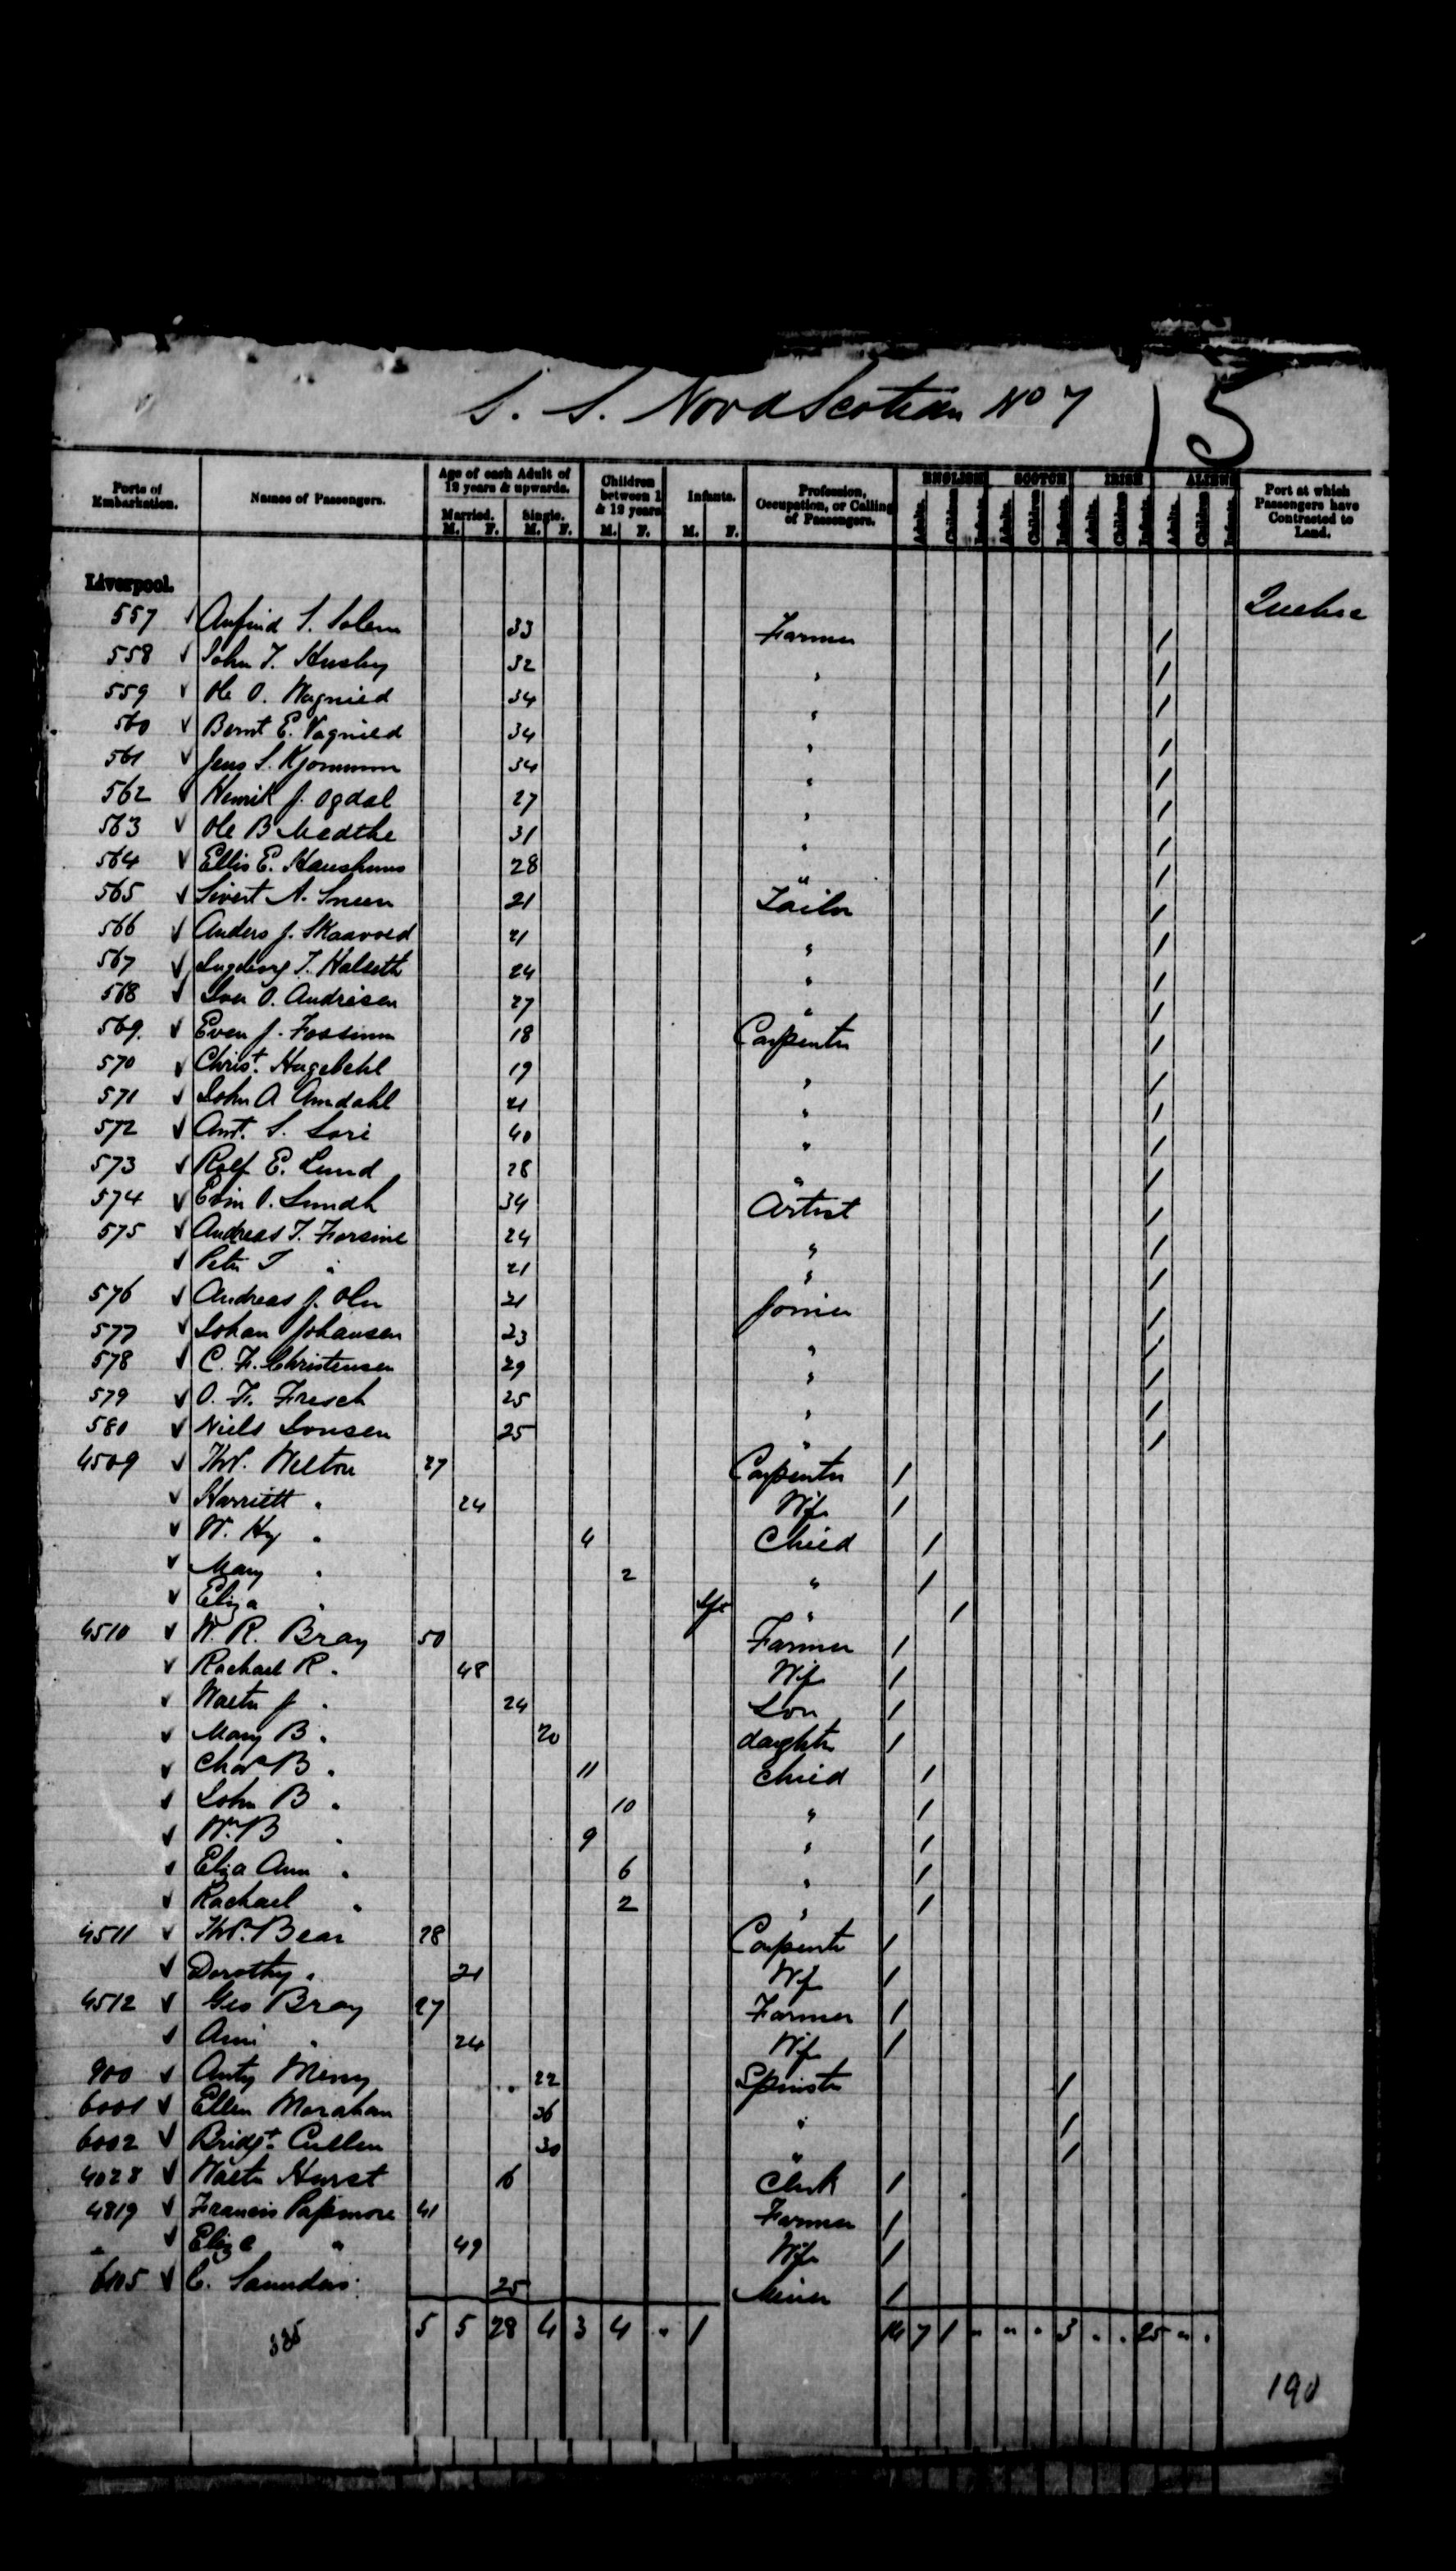 S. S. Nova Scotian No 7
15
Ports of Embarkation. Names of Passengers. Age of each Adult of 12 years & upwards. Married. M. F. Single. M. F. Children between 1 & 12 years M. F. Infants. M. F. Profession, Occupation, or Calling of Passengers. ENGLISH Adults. Children Infants. SCOTCH Adults. Children Infants. IRISH Adults. Children Infants. ALIENS Adults. Children Infants. Port at which Passengers have Contracted to Land.
Liverpool. Quebec
557 Anfind S. Solem 33 Farmer /
558 John T. Husby 32 " /
559 Ole O. Wagnild 34 " /
560 Bernt E. Vagnild 34 " /
561 Jens S. 34 " /
562 Henrik J. Ogdal 27 " /
563 Ole B 31 " /
564 Ellis E. 28 " /
565 Sivert A. 21 Tailor /
566 Anders J. Skaavold 21 " /
567 T. Halseth 24 " /
568 Iver O. Andrisen 27 " /
569. Even J. Fossum 18 Carpenter /
570 Christ. 19 " /
571 John A Amdahl 21 " /
572 Ant. S. 40 " /
573 Rolf E. Lund 28 " /
574 O. Lundh 34 Artist /
575 Andreas T. 24 " /
Peter T " 21 " /
576 Andreas J. 21 Joiner /
577 Johan Johansen 23 " /
578 C. F. Christensen 29 " /
579 O. F. Fresch 25 " /
580 Niels Jonsen 25 " /
4509 Thos. Welton 27 Carpenter /
Harriett " 24 Wife /
W. Hy " 4 Child /
Mary " 2 " /
Eliza " Inft " /
4510 W. R. Bray 50 Farmer /
Rachael R. " 48 Wife /
Walter J " 24 Son /
Mary B. " 20 daughter /
Chas B. " 11 child /
John B " 10 " /
Wm B " 9 " /
Eliza Ann " 6 " /
Rachael " 2 " /
4511 Thos. Bear 28 Carpenter /
Dorothy " 21 Wife /
4512 Geo Bray 27 Farmer /
" 24 Wife /
900 Anty 22 Spinster /
6001 Ellen Morahan 26 " /
6002 Bridgt. Cullen 30 " /
4028 Walter Hurst 16 Clerk /
4819 Francis Passmore 41 Farmer /
" " 49 Wife /
C. Saunders 25 Miner /
5 5 28 4 3 4 " 1 14 7 1 " " " 3 " " 25 " "
190